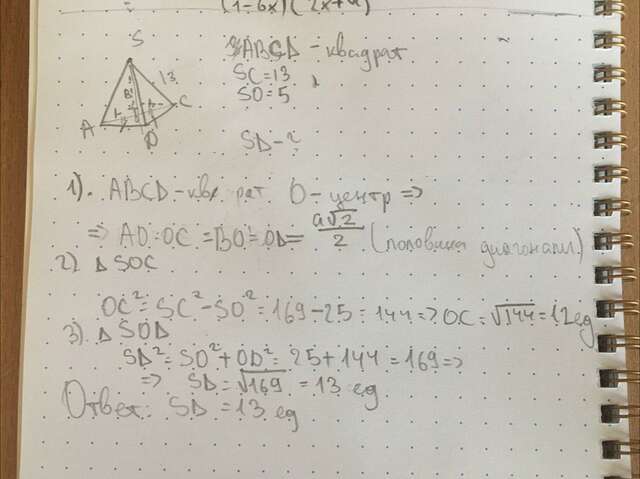 (1-6x)(2x+a)
S
ABCD - квадрат
SC = 13
SO = 5
13
B
C
A
D
SD - ?
1). ABCD - кв рат O - центр =>
=> AO = OC = BO = OD = a√2/2 (половина диагонали)
2) △ SOC
OC² = SC² - SO² = 169 - 25 = 144 => OC = √144 = 12 ед
3) △ SOD
SD² = SO² + OD² = 25 + 144 = 169 =>
=> SD = √169 = 13 ед
Ответ: SD = 13 ед